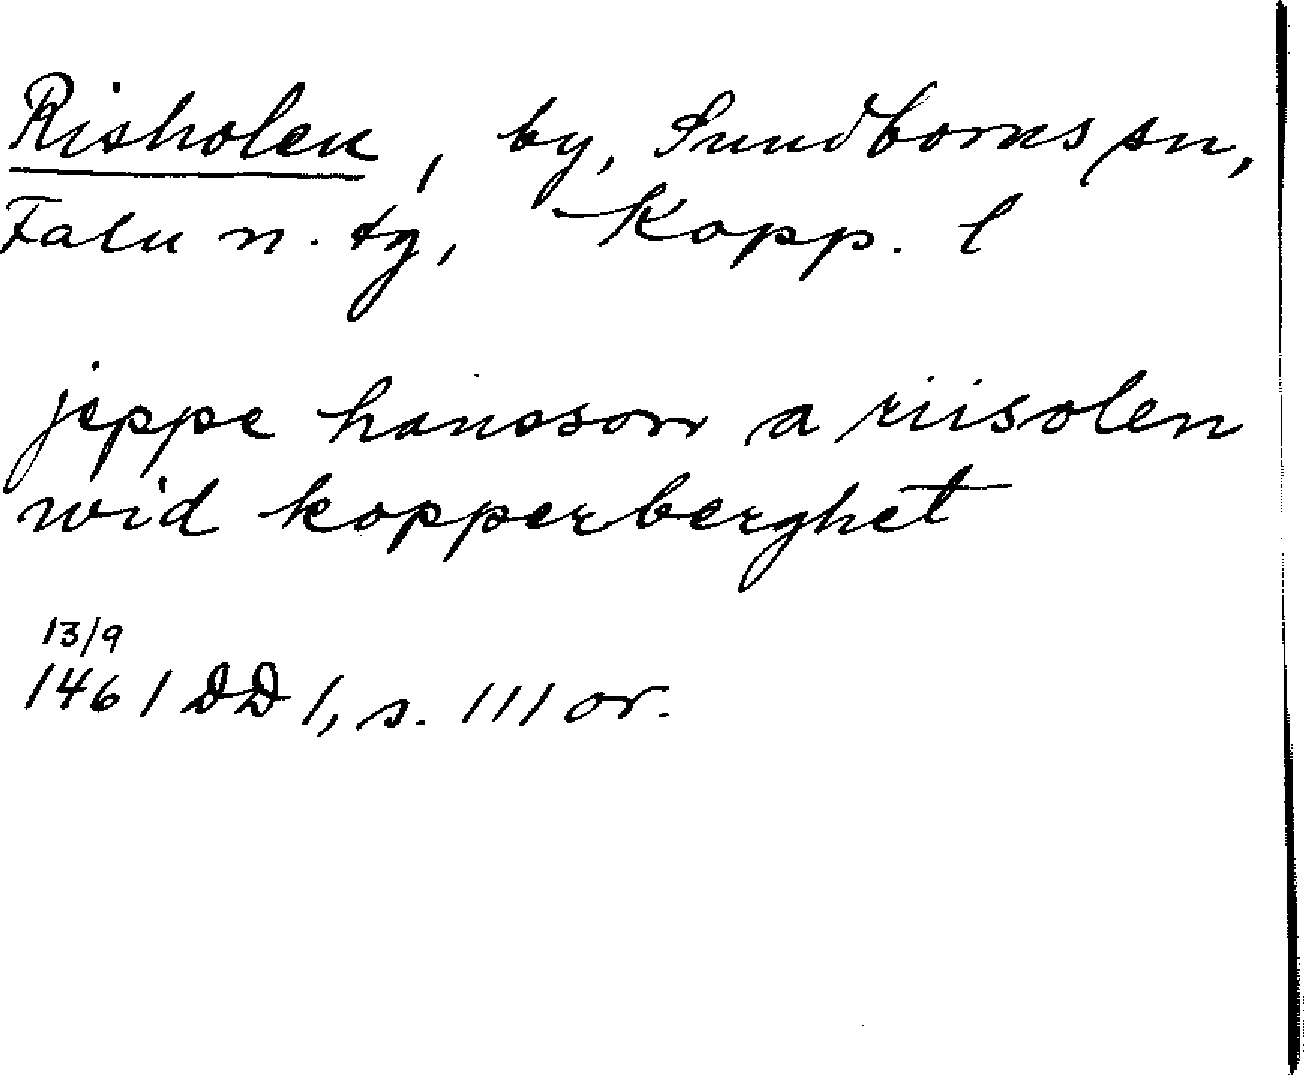 Risholen, by, Sundborns sn,
Falu n. tg, Kopp. l
jeppe hansson a riisolen
wid kopperberghet
13/9
1461 DD 1, s. 111 or.